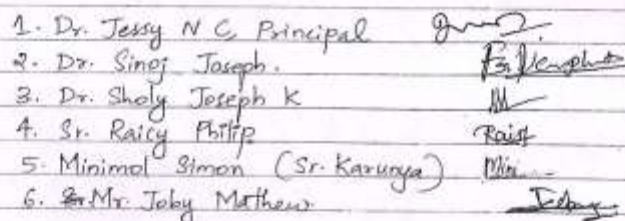 1. Dr. Jessy N C, Principal
2. Dr. Sinoj Joseph.
3. Dr. Sholy Joseph K
4. Sr. Raicy Philip Raisy
5. Minimol Simon (Sr. Karunya) Mini
6. Mr. Joby Mathew. Joby